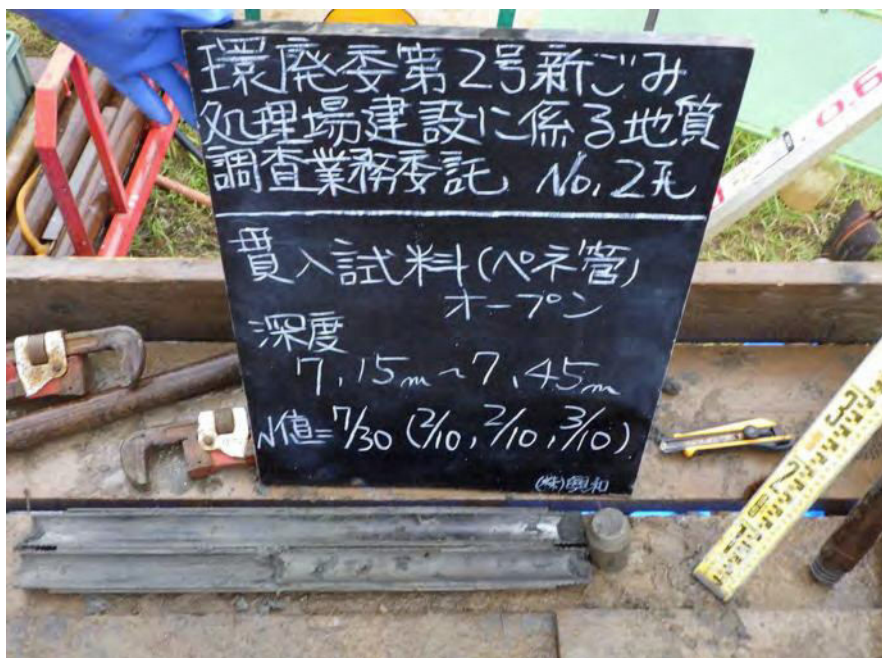 環廃委第2号新ごみ
処理場建設に係る地質
調査業務委託 No.2孔
貫入試料(ペネ管)
オープン
深度
7.15m~7.45m
N値=7/30 (2/10, 2/10, 3/10)
(株)興和
0.6
3
2